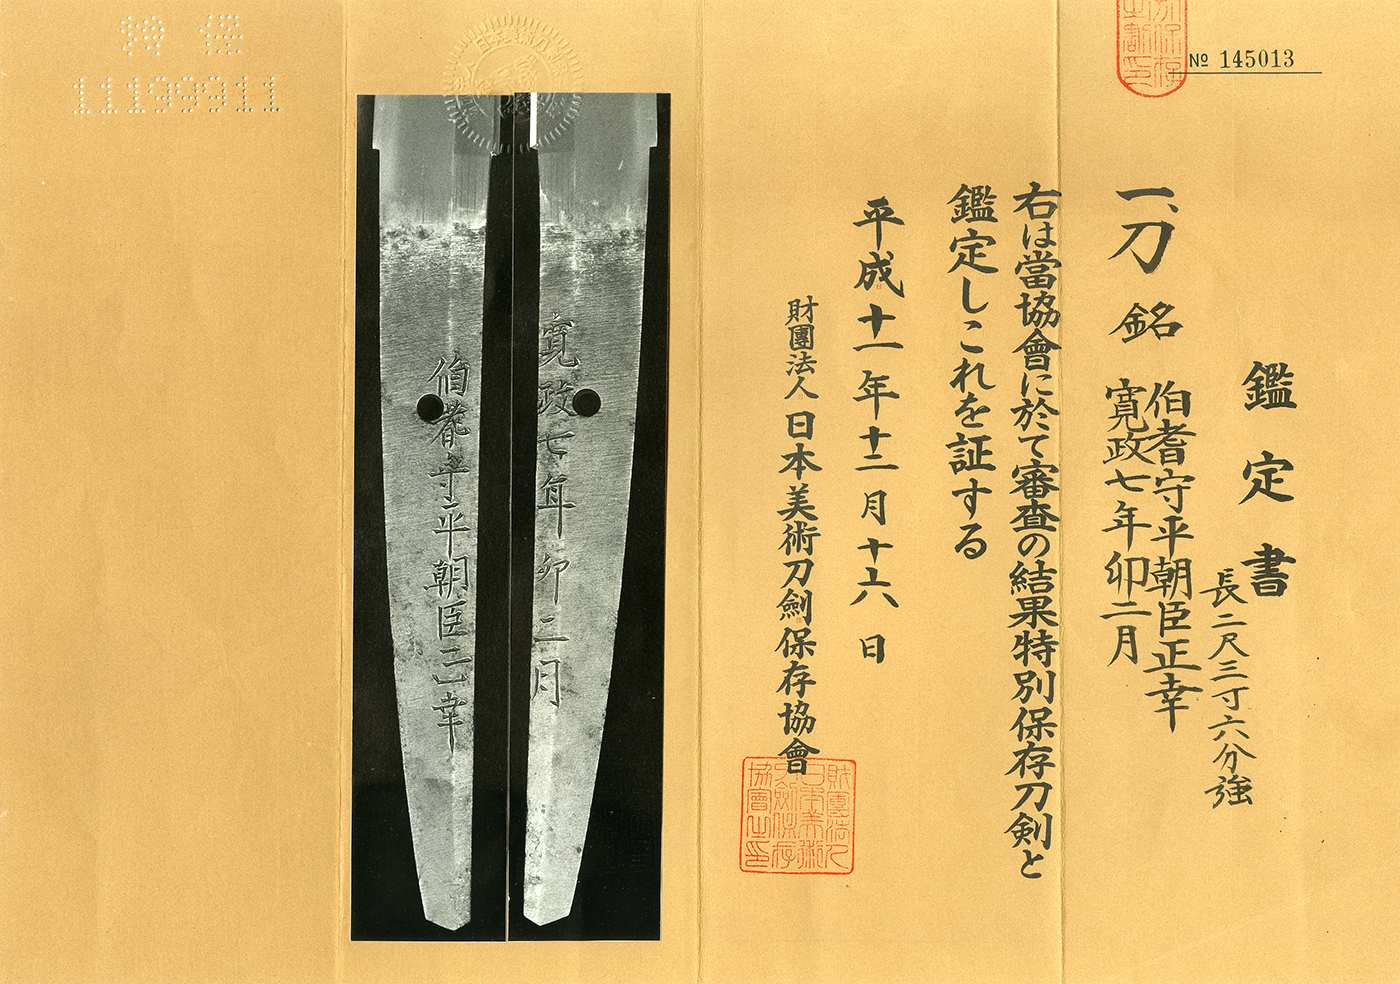 № 145013
鑑定書
長二尺三寸六分強
一、刀 銘
伯耆守平朝臣正幸
寛政七年卯二月
右は當協會に於て審査の結果特別保存刀剣と
鑑定しこれを証する
平成十一年十二月十六日
財團法人日本美術刀劍保存協會
財團法人
日本美術
刀劍保存
協會之印
寛政七年卯二月
伯耆守平朝臣正幸
特保
11199911